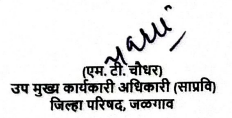 (एम. टी. चौधर)
उप मुख्य कार्यकारी अधिकारी (साप्रवि)
जिल्हा परिषद, जळगाव